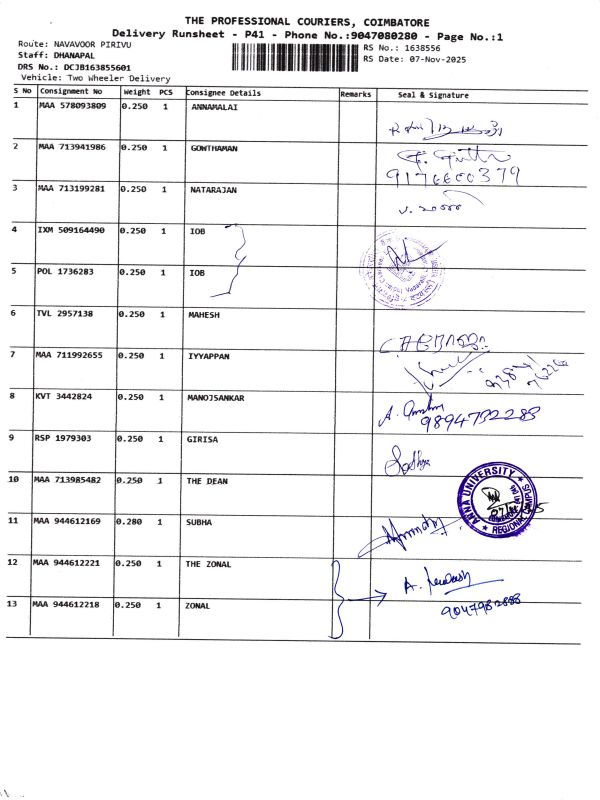 THE PROFESSIONAL COURIERS, COIMBATORE
Delivery Runsheet - P41 - Phone No.:9047080280 - Page No.:1
Route: NAVAVOOR PIRIVU
Staff: DHANAPAL
DRS No.: DCJB163855601
Vehicle: Two Wheeler Delivery
RS No.: 1638556
RS Date: 07-Nov-2025
S No Consignment No Weight PCS Consignee Details Remarks Seal & Signature
1 MAA 578093809 0.250 1 ANNAMALAI
2 MAA 713941986 0.250 1 GOWTHAMAN
3 MAA 713199281 0.250 1 NATARAJAN
4 IXM 509164490 0.250 1 IOB
5 POL 1736283 0.250 1 IOB
6 TVL 2957138 0.250 1 MAHESH
7 MAA 711992655 0.250 1 IYYAPPAN
8 KVT 3442824 0.250 1 MANOJSANKAR
9894732283
9 RSP 1979303 0.250 1 GIRISA
10 MAA 713985482 0.250 1 THE DEAN
ANNA UNIVERSITY
REGIONAL CAMPUS
11 MAA 944612169 0.280 1 SUBHA
12 MAA 944612221 0.250 1 THE ZONAL
13 MAA 944612218 0.250 1 ZONAL
9047982888